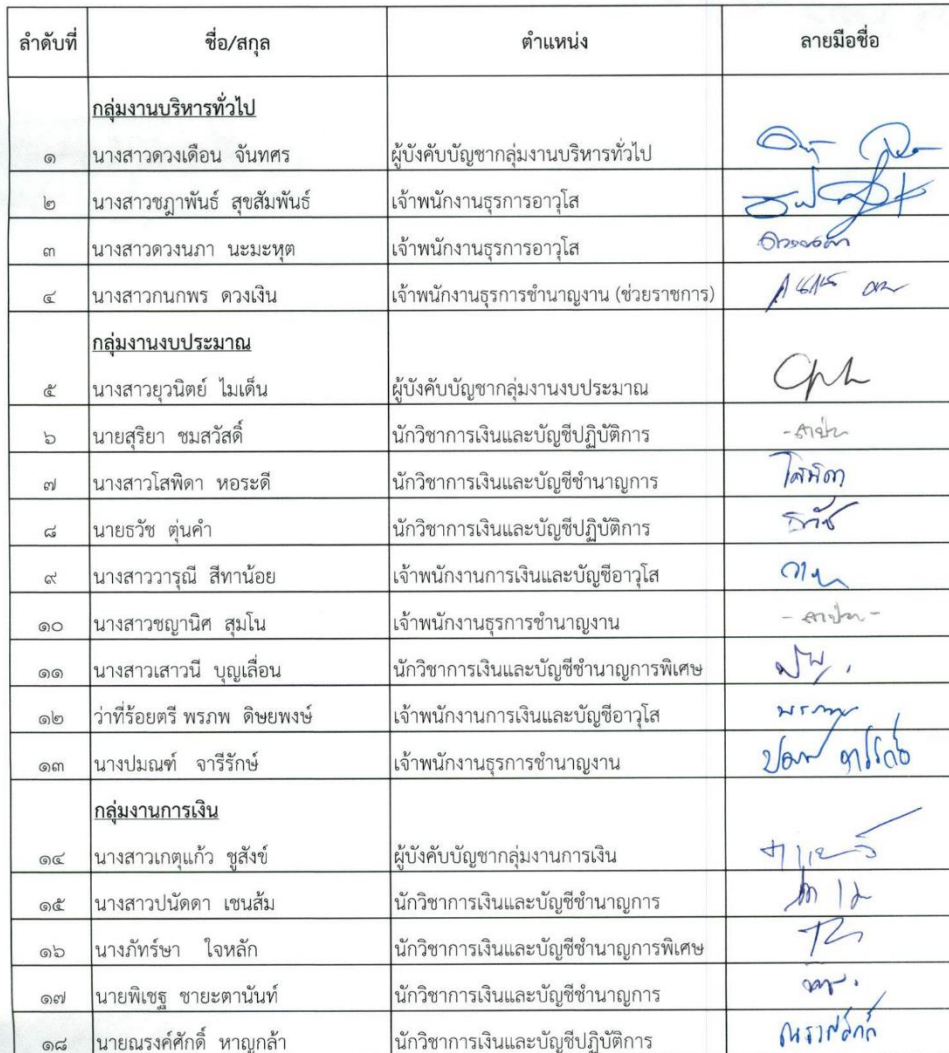 ลำดับที่ ชื่อ/สกุล ตำแหน่ง ลายมือชื่อ
กลุ่มงานบริหารทั่วไป
๑ นางสาวดวงเดือน จันทศร ผู้บังคับบัญชากลุ่มงานบริหารทั่วไป
๒ นางสาวชฎาพันธ์ สุขสัมพันธ์ เจ้าพนักงานธุรการอาวุโส
๓ นางสาวดวงนภา นะมะหุต เจ้าพนักงานธุรการอาวุโส ดวงนภา
๔ นางสาวกนกพร ดวงเงิน เจ้าพนักงานธุรการชำนาญงาน (ช่วยราชการ)
กลุ่มงานงบประมาณ
๕ นางสาวยุวนิตย์ ไมเด็น ผู้บังคับบัญชากลุ่มงานงบประมาณ
๖ นายสุริยา ชมสวัสดิ์ นักวิชาการเงินและบัญชีปฏิบัติการ - ลาป่วย
๗ นางสาวโสพิดา หอระดี นักวิชาการเงินและบัญชีชำนาญการ โสพิดา
๘ นายธวัช ตุ่นคำ นักวิชาการเงินและบัญชีปฏิบัติการ ธวัช
๙ นางสาววารุณี สีทาน้อย เจ้าพนักงานการเงินและบัญชีอาวุโส
๑๐ นางสาวชญานิศ สุมโน เจ้าพนักงานธุรการชำนาญงาน - ลาป่วย -
๑๑ นางสาวเสาวนี บุญเลื่อน นักวิชาการเงินและบัญชีชำนาญการพิเศษ
๑๒ ว่าที่ร้อยตรี พรภพ ดิษยพงษ์ เจ้าพนักงานการเงินและบัญชีอาวุโส พรภพ
๑๓ นางปมณฑ์ จารีรักษ์ เจ้าพนักงานธุรการชำนาญงาน
กลุ่มงานการเงิน
๑๔ นางสาวเกตุแก้ว ชูสังข์ ผู้บังคับบัญชากลุ่มงานการเงิน
๑๕ นางสาวปนัดดา เชนส้ม นักวิชาการเงินและบัญชีชำนาญการ
๑๖ นางภัทร์ษา ใจหลัก นักวิชาการเงินและบัญชีชำนาญการพิเศษ
๑๗ นายพิเชฐ ชายะตานันท์ นักวิชาการเงินและบัญชีชำนาญการ
๑๘ นายณรงค์ศักดิ์ หาญกล้า นักวิชาการเงินและบัญชีปฏิบัติการ ณรงค์ศักดิ์